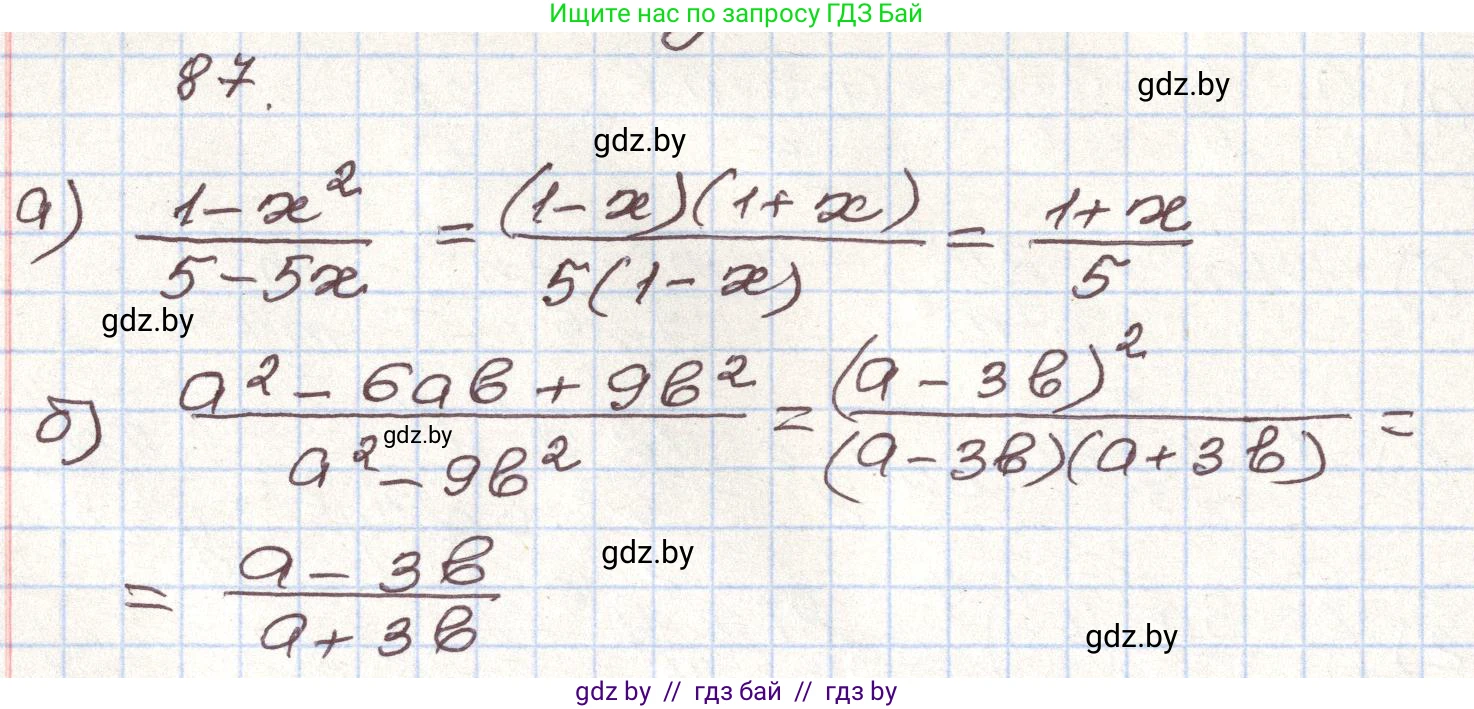 Ищите нас по запросу ГДЗ Бай
87.
gdz.by
gdz.by
а) (1-x²)/(5-5x) = ((1-x)(1+x))/(5(1-x)) = (1+x)/5
gdz.by
б) (a²-6ab+9b²)/(a²-9b²) = (a-3b)²/((a-3b)(a+3b)) =
gdz.by
= (a-3b)/(a+3b)
gdz.by
gdz.by
gdz by // гдз бай // гдз by